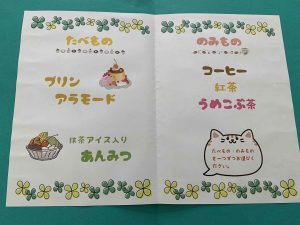 たべもの
プリン
アラモード
抹茶アイス入り
あんみつ
のみもの
コーヒー
紅茶
うめこぶ茶
たべもの・のみもの
を一つずつお選びく
ださい。